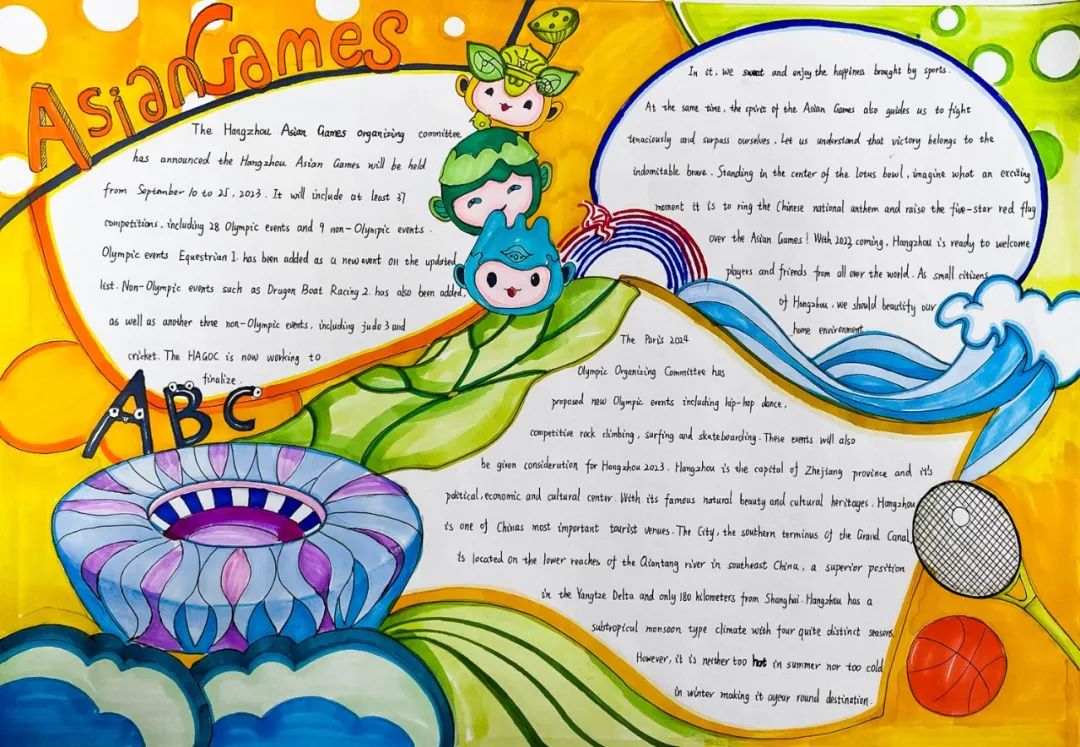 Asian Games
The Hangzhou Asian Games organizing committee
has announced the Hangzhou Asian Games will be held
from September 10 to 25, 2023. It will include at least 37
competitions, including 28 Olympic events and 9 non-Olympic events.
Olympic events Equestrian 1. has been added as a new event on the updated
list. Non-Olympic events such as Dragon Boat Racing 2. has also been added,
as well as another three non-Olympic events, including judo 3 and
cricket. The HAGOC is now working to
finalize.
ABC
In it, we sweat and enjoy the happiness brought by sports.
At the same time, the spirit of the Asian Games also guides us to fight
tenaciously and surpass ourselves. Let us understand that victory belongs to the
indomitable brave. Standing in the center of the lotus bowl, imagine what an exciting
moment it is to ring the Chinese national anthem and raise the five-star red flag
over the Asian Games! With 2023 coming, Hangzhou is ready to welcome
players and friends from all over the world. As small citizens
of Hangzhou, we should beautify our
home environment
The Paris 2024
Olympic Organizing Committee has
proposed new Olympic events including hip-hop dance,
competitive rock climbing, surfing and skateboarding. These events will also
be given consideration for Hangzhou 2023. Hangzhou is the capital of Zhejiang province and it's
political, economic and cultural center. With its famous natural beauty and cultural heritages, Hangzhou
is one of Chinas most important tourist venues. The City, the southern terminus of the Grand Canal,
is located on the lower reaches of the Qiantang river in southeast China, a superior position
in the Yangtze Delta and only 180 kilometers from Shanghai. Hangzhou has a
subtropical monsoon type climate with four quite distinct seasons.
However, it is neither too hot in summer nor too cold
in winter making it ayeur round destination.